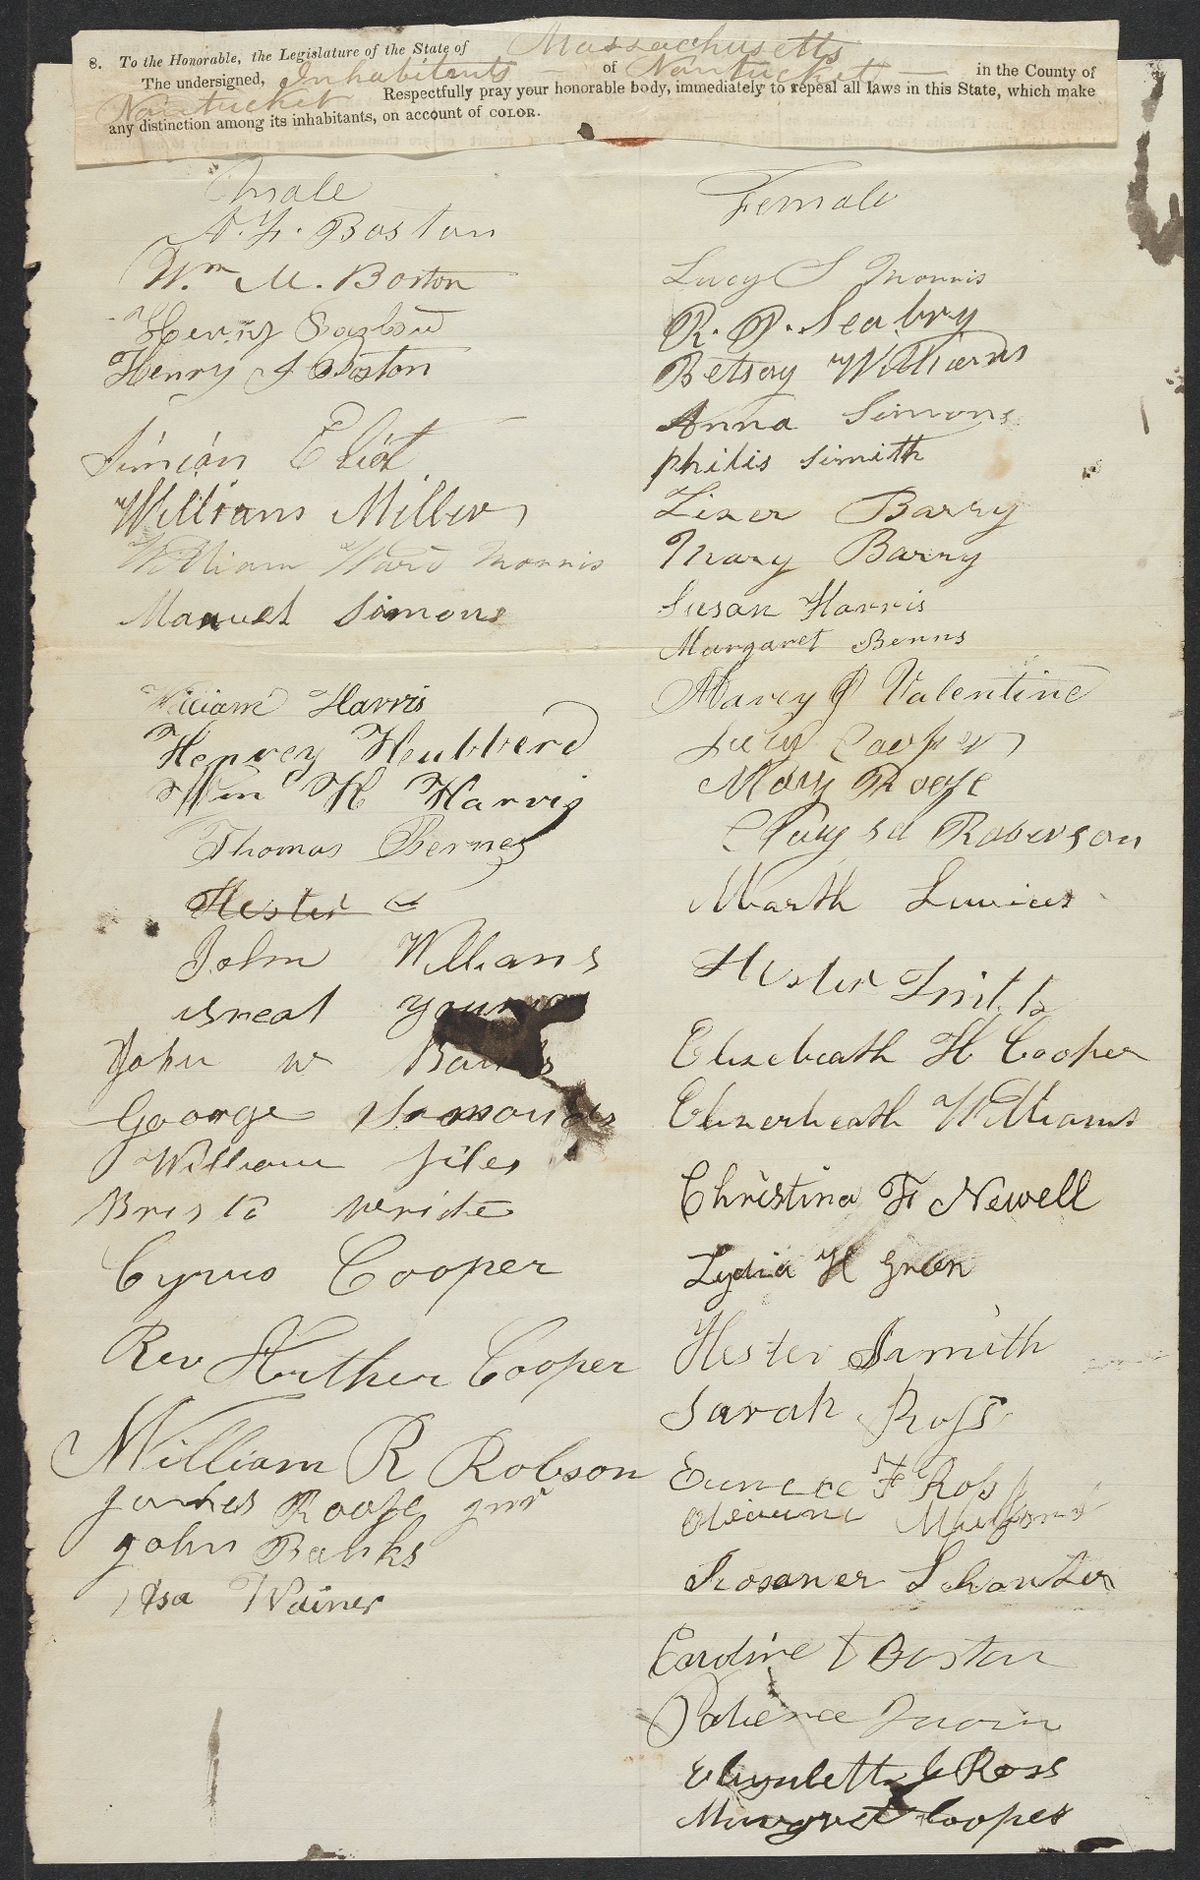 8. To the Honorable, the Legislature of the State of Massachusetts
The undersigned, Inhabitants of Nantucket in the County of
Nantucket Respectfully pray your honorable body, immediately to repeal all laws in this State, which make
any distinction among its inhabitants, on account of COLOR.
Male
A. F. Boston
Wm M. Boston
Henry
Henry J Boston
Simián Eliot
Williams Miller
William Ward Morris
Manuel Simons
William Harris
Henrey Hubberd
Wm H Harris
Thomas Bernes
Hester
John Willians
isreal young
John w Banks
George Simonds
William Jiles
Bristo write
Cyrus Cooper
Rev Arther Cooper
William R Robson
James Roose
John Banks
Asa Wainer
Female
Lucy S Morris
R. P. Seabry
Betsey Williams
Anna Simons
philis Simith
Lizer Barry
Mary Barry
Susan Harris
Margaret Benns
Marcy J Valentine
Lucy Cooper
Mary Roose
Roberson
Marth
Hester Smith
Elizebeath H Cooper
Elizerbeath Williams
Christina F. Newell
Lydia H Green
Hester Simith
Sarah Ross
Eunice F Ross
Rosaner
Caroline Boston
Patience
Elizabeth J Ross
Margret Cooper